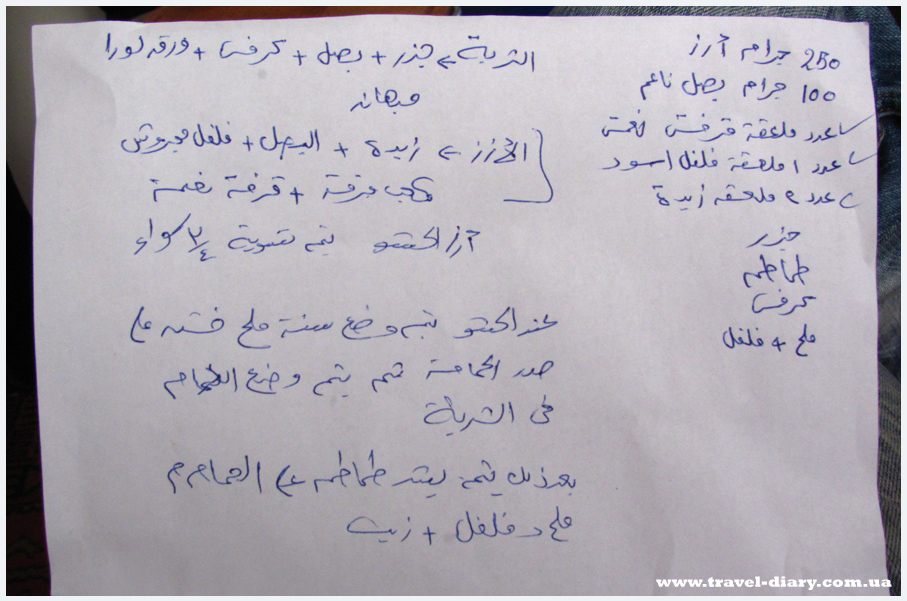 250 جرام أرز
100 جرام بصل ناعم
عدد ملعقة قرفة
عدد 1 ملعقة فلفل اسود
عدد 2 ملعقة زبدة
جزر
طماطم
كرفس
ملح + فلفل
الشربة ← جزر + بصل + كرفس + ورق لورا
حبهان
الأرز ← زبدة + البصل + فلفل مجروش
مكعب مرقة + قرفة نعمة
أرز الحشو يتم تسوية ٣/٤ سواء
عند الحشو يتم وضع سنة ملح على
صدر الحمامة ثم يتم وضع الحمام
فى الشربة
بعد ذلك يتم طماطم على الحمام
ملح و فلفل + زيت
www.travel-diary.com.ua